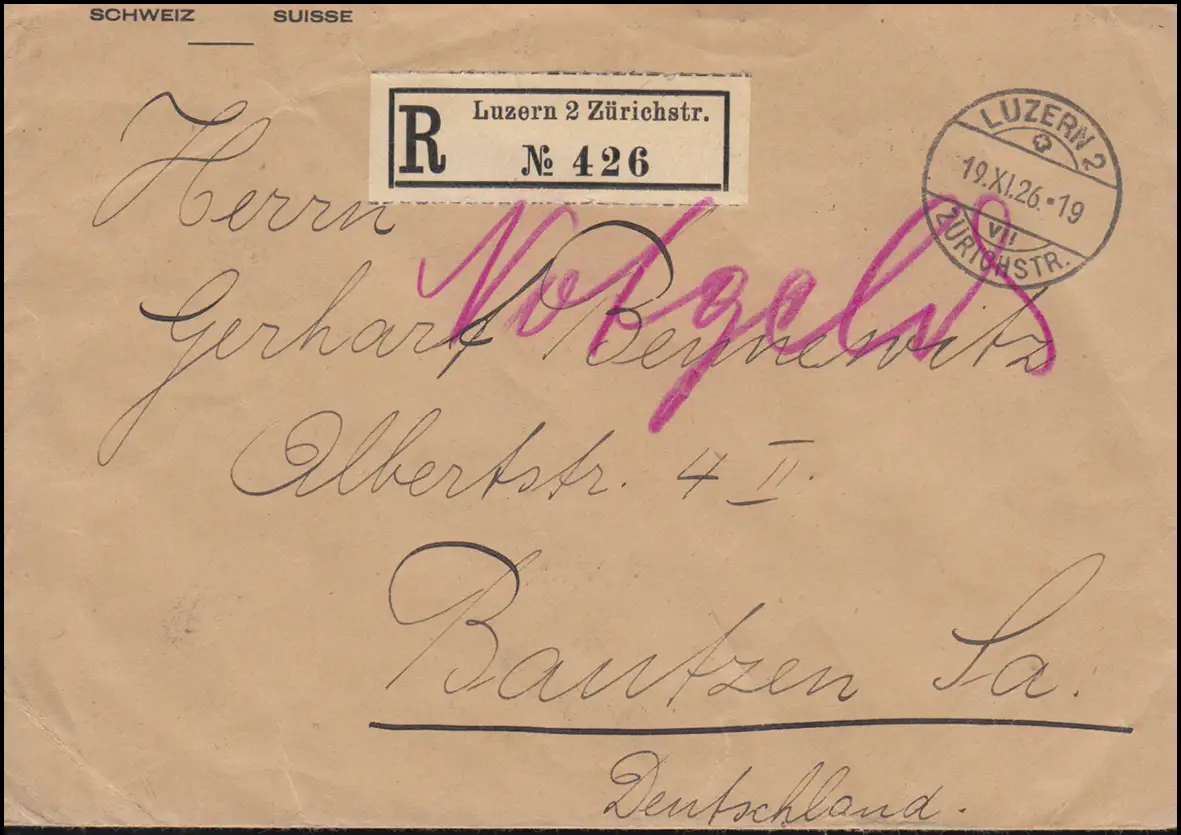 SCHWEIZ SUISSE
R Luzern 2 Zürichstr.
№ 426
LUZERN 2
19.XI.26.-19
VII
ZÜRICHSTR.
Herrn
Notgeld
Gerhart Bennewitz
Albertstr. 4 II.
Bautzen Sa.
Deutschland.